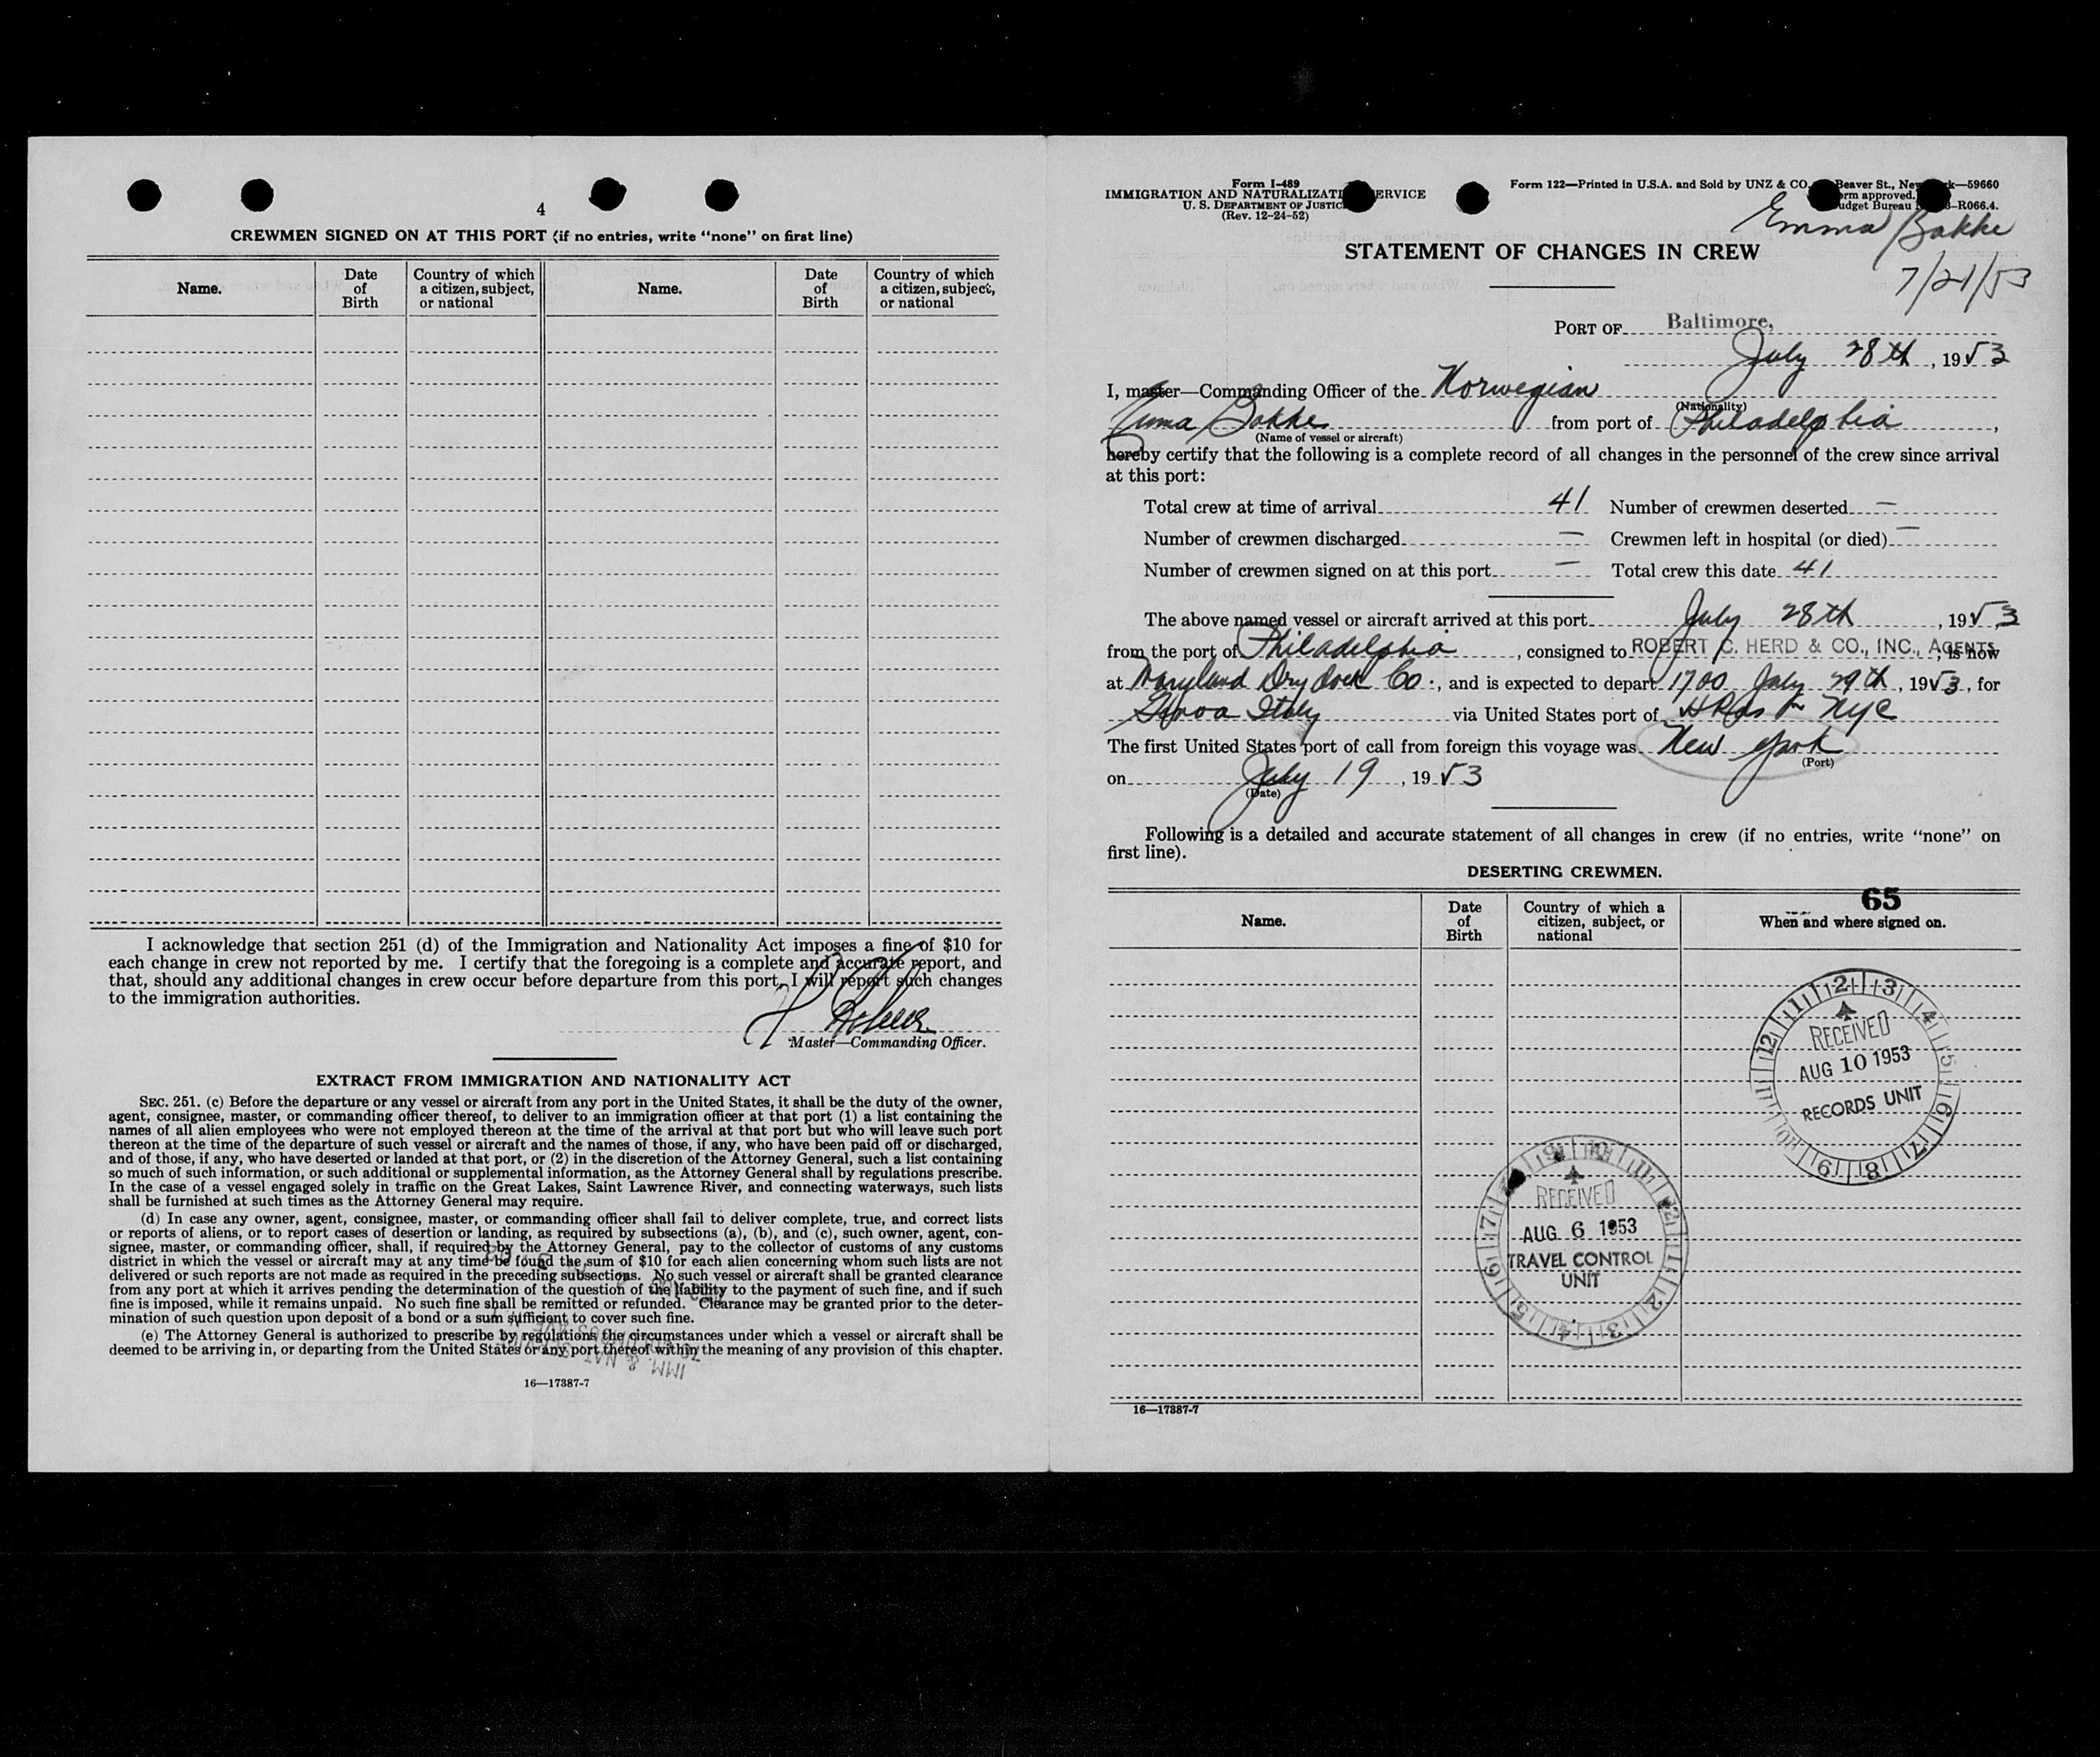 4
CREWMEN SIGNED ON AT THIS PORT (if no entries, write "none" on first line)
Name. Date of Birth Country of which a citizen, subject, or national Name. Date of Birth Country of which a citizen, subject, or national
I acknowledge that section 251 (d) of the Immigration and Nationality Act imposes a fine of $10 for
each change in crew not reported by me. I certify that the foregoing is a complete and accurate report, and
that, should any additional changes in crew occur before departure from this port, I will report such changes
to the immigration authorities.
Master—Commanding Officer.
EXTRACT FROM IMMIGRATION AND NATIONALITY ACT
SEC. 251. (c) Before the departure or any vessel or aircraft from any port in the United States, it shall be the duty of the owner,
agent, consignee, master, or commanding officer thereof, to deliver to an immigration officer at that port (1) a list containing the
names of all alien employees who were not employed thereon at the time of the arrival at that port but who will leave such port
thereon at the time of the departure of such vessel or aircraft and the names of those, if any, who have been paid off or discharged,
and of those, if any, who have deserted or landed at that port, or (2) in the discretion of the Attorney General, such a list containing
so much of such information, or such additional or supplemental information, as the Attorney General shall by regulations prescribe.
In the case of a vessel engaged solely in traffic on the Great Lakes, Saint Lawrence River, and connecting waterways, such lists
shall be furnished at such times as the Attorney General may require.
(d) In case any owner, agent, consignee, master, or commanding officer shall fail to deliver complete, true, and correct lists
or reports of aliens, or to report cases of desertion or landing, as required by subsections (a), (b), and (c), such owner, agent, con-
signee, master, or commanding officer, shall, if required by the Attorney General, pay to the collector of customs of any customs
district in which the vessel or aircraft may at any time be found the sum of $10 for each alien concerning whom such lists are not
delivered or such reports are not made as required in the preceding subsections. No such vessel or aircraft shall be granted clearance
from any port at which it arrives pending the determination of the question of the liability to the payment of such fine, and if such
fine is imposed, while it remains unpaid. No such fine shall be remitted or refunded. Clearance may be granted prior to the deter-
mination of such question upon deposit of a bond or a sum sufficient to cover such fine.
(e) The Attorney General is authorized to prescribe by regulations the circumstances under which a vessel or aircraft shall be
deemed to be arriving in, or departing from the United States or any port thereof within the meaning of any provision of this chapter.
16—17387-7
Form I-489
IMMIGRATION AND NATURALIZATION SERVICE
U. S. DEPARTMENT OF JUSTICE
(Rev. 12-24-52)
Form 122—Printed in U.S.A. and Sold by UNZ & CO. Beaver St., New York—59660
Form approved.
Budget Bureau -R066.4.
Emma Bakke
7/21/53
STATEMENT OF CHANGES IN CREW
PORT OF Baltimore,
July 28th, 1953
I, master—Commanding Officer of the Norwegian
(Nationality)
Emma Bakke from port of Philadelphia,
(Name of vessel or aircraft)
hereby certify that the following is a complete record of all changes in the personnel of the crew since arrival
at this port:
Total crew at time of arrival 41 Number of crewmen deserted —
Number of crewmen discharged — Crewmen left in hospital (or died) —
Number of crewmen signed on at this port — Total crew this date 41
The above named vessel or aircraft arrived at this port July 28th, 1953
from the port of Philadelphia, consigned to ROBERT C. HERD & CO., INC., AGENTS, is now
at Maryland Dry dock Co., and is expected to depart 1700 July 29th, 1953, for
Genoa Italy via United States port of NYC
The first United States port of call from foreign this voyage was New York
(Port)
on July 19, 1953
(Date)
Following is a detailed and accurate statement of all changes in crew (if no entries, write "none" on
first line).
DESERTING CREWMEN.
65
Name. Date of Birth Country of which a citizen, subject, or national When and where signed on.
RECEIVED
AUG 10 1953
RECORDS UNIT
RECEIVED
AUG 6 1953
TRAVEL CONTROL
UNIT
16—17387-7